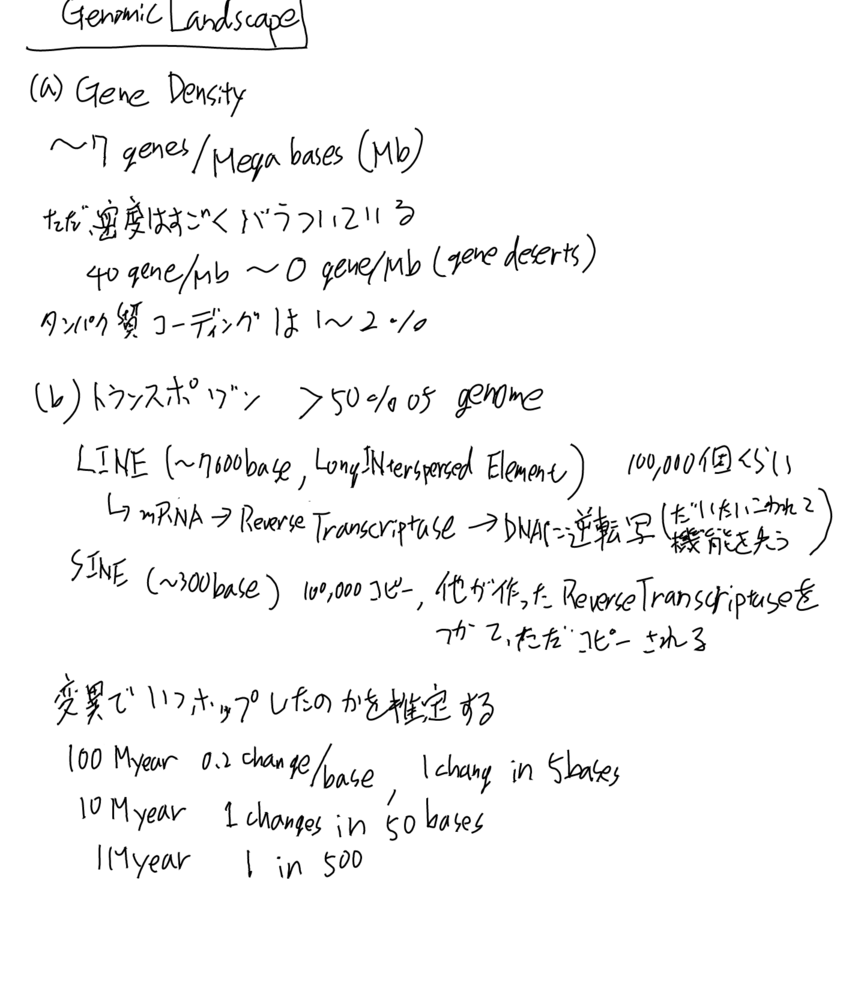 Genomic Landscape
(a) Gene Density
~7 genes/Mega bases (Mb)
ただ、密度はすごくバラついている
40 gene/Mb ~ 0 gene/Mb (gene deserts)
タンパク質コーディングは1~2%
(b) トランスポゾン >50% of genome
LINE (~7600base, Long INterspersed Element) 100,000個くらい
↳ mRNA → Reverse Transcriptase → DNAに逆転写 (だいたいこわれて機能を失う)
SINE (~300base) 100,000コピー, 他が作ったReverse Transcriptaseを
つかって、ただコピーされる
変異でいつ、ホップしたのかを推定する
100 Myear 0.2 change/base, 1 chang in 5bases
10 Myear 1 changes in 50 bases
1Myear 1 in 500